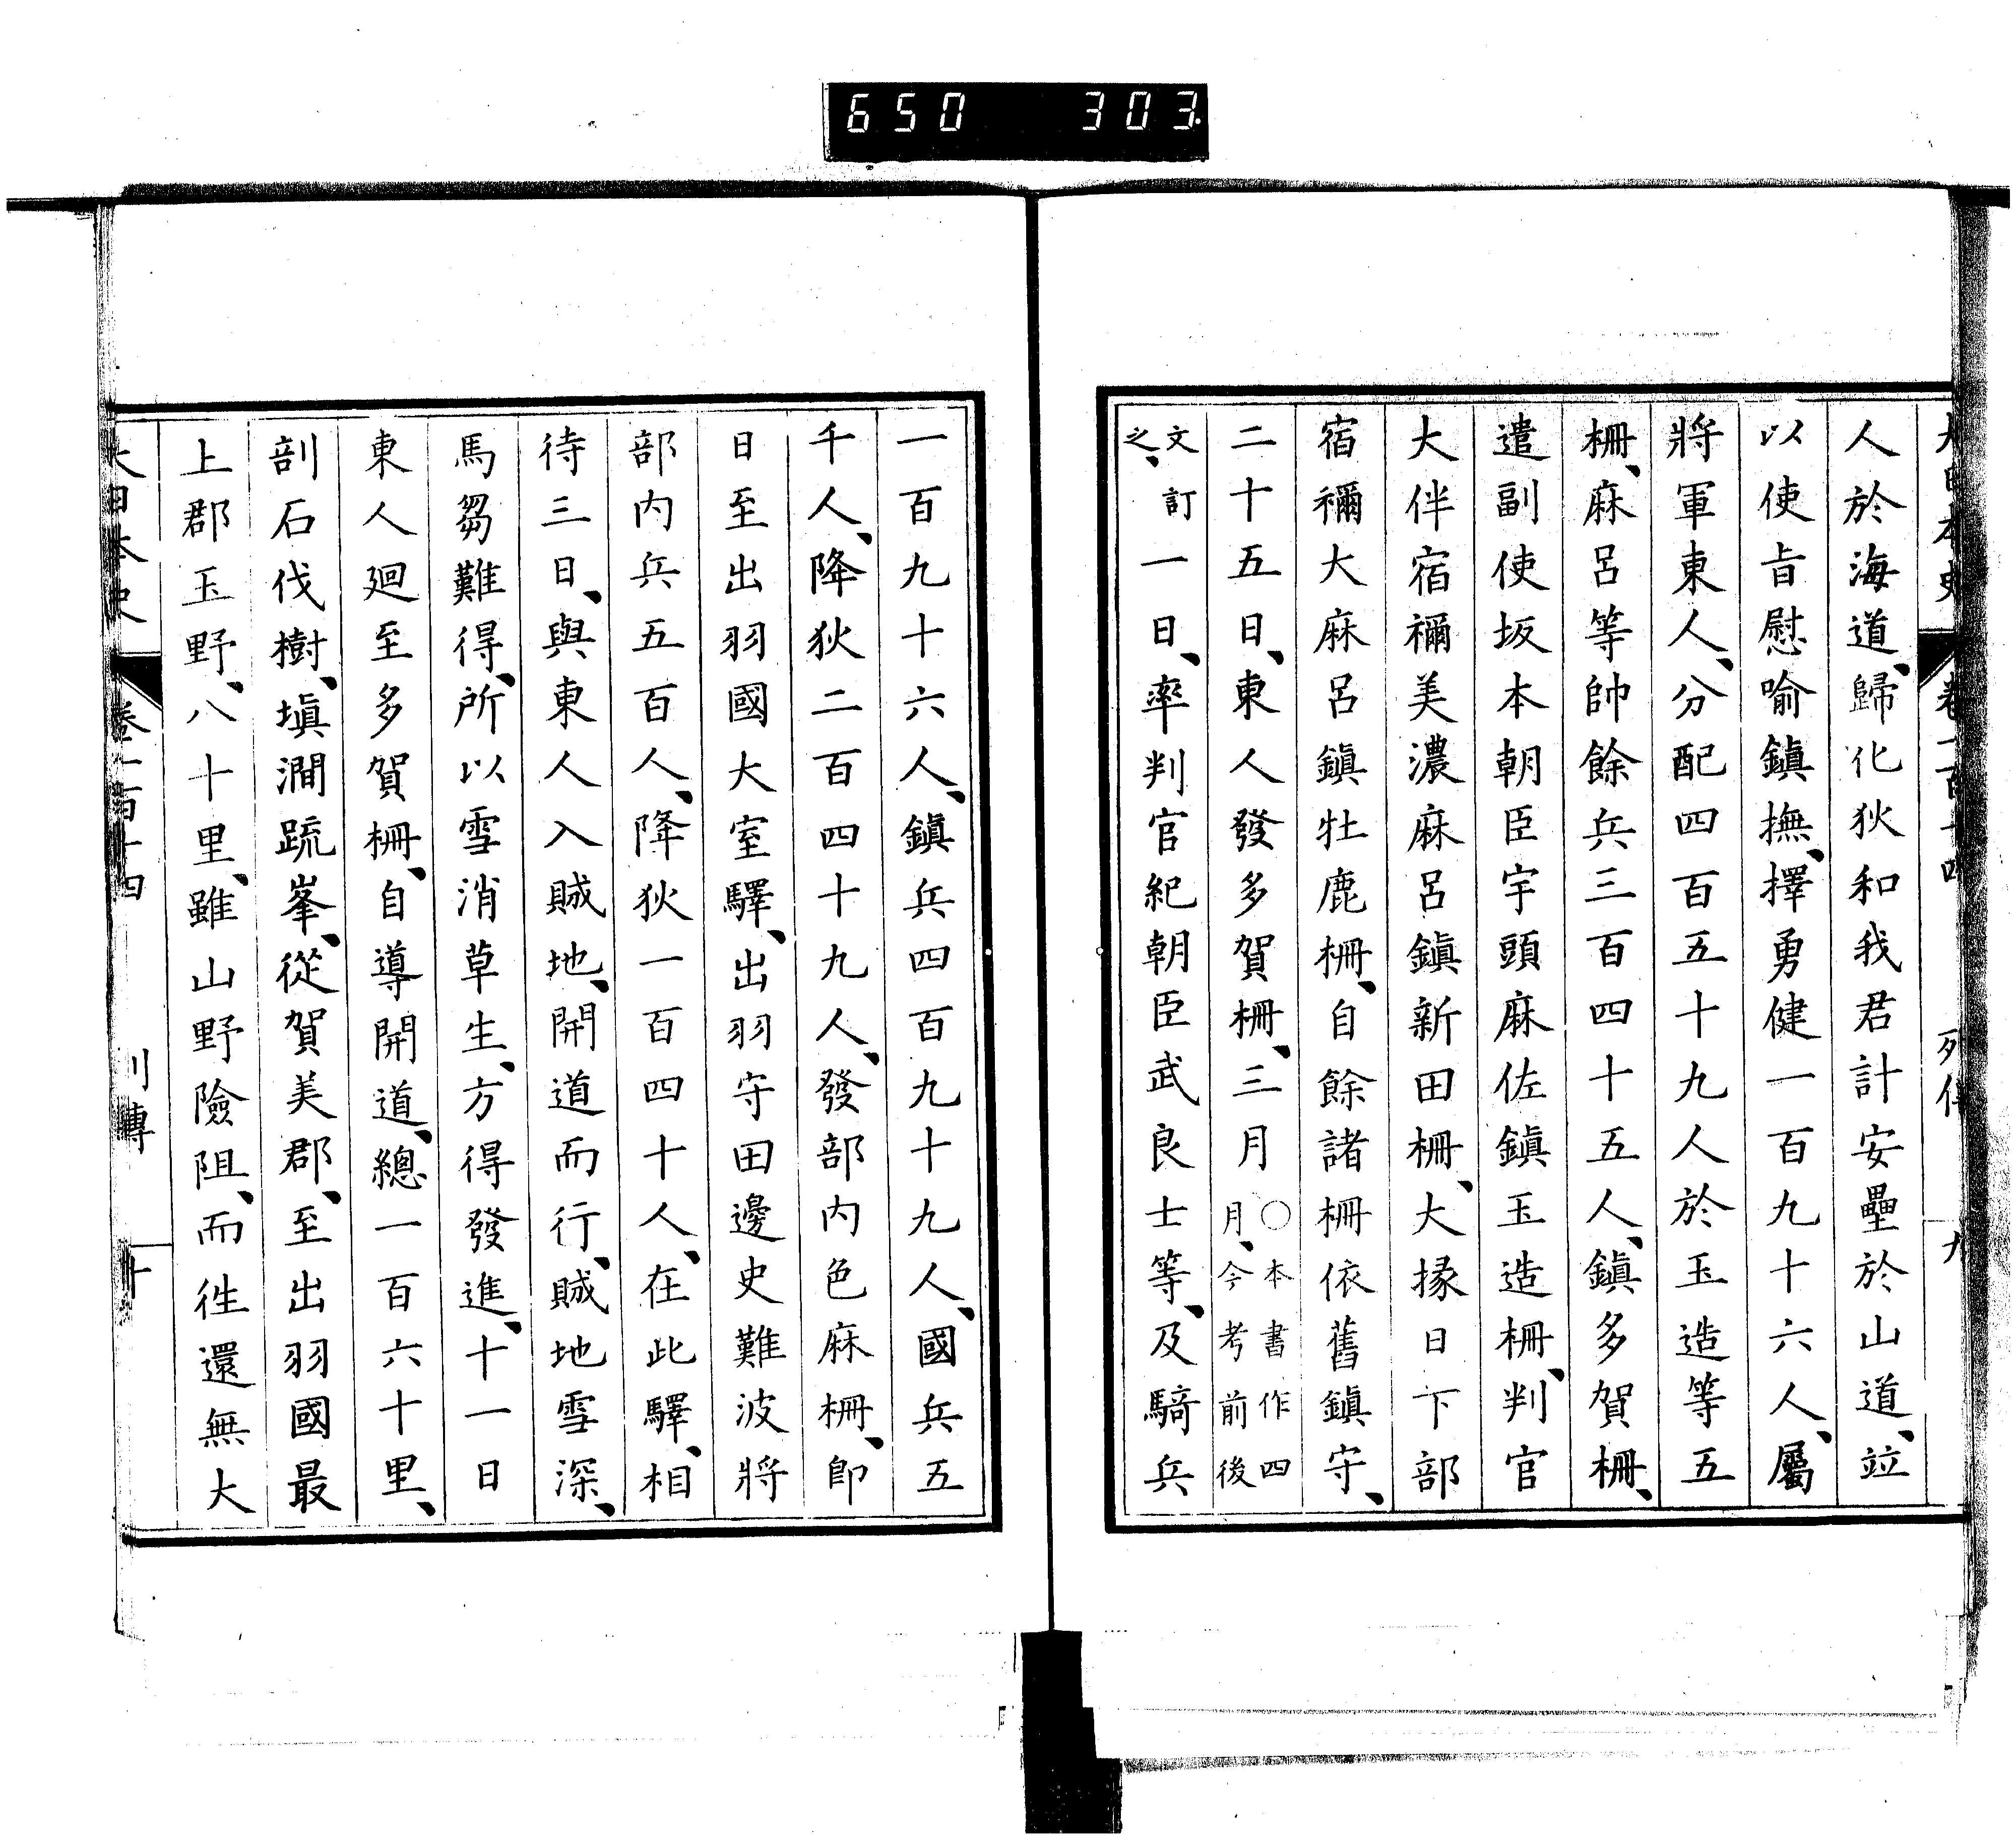 650 303
大日本史 卷一百十四 列傳 九
人於海道、歸化狄和我君計安壘於山道、竝
以使旨慰喻鎭撫、擇勇健一百九十六人、屬
將軍東人、分配四百五十九人於玉造等五
柵、麻呂等帥餘兵三百四十五人、鎭多賀柵、
遣副使坂本朝臣宇頭麻佐鎭玉造柵、判官
大伴宿禰美濃麻呂鎭新田柵、大掾日下部
宿禰大麻呂鎭牡鹿柵、自餘諸柵依舊鎭守、
二十五日、東人發多賀柵、三月○本書作四月、今考前後
文訂之、一日、率判官紀朝臣武良士等、及騎兵
一百九十六人、鎭兵四百九十九人、國兵五
千人、降狄二百四十九人、發部内色麻柵、卽
日至出羽國大室驛、出羽守田邊史難波將
部内兵五百人、降狄一百四十人、在此驛、相
待三日、與東人入賊地、開道而行、賊地雪深、
馬芻難得、所以雪消草生、方得發進、十一日
東人廻至多賀柵、自導開道、總一百六十里、
剖石伐樹、塡澗疏峯、從賀美郡、至出羽國最
上郡玉野、八十里、雖山野險阻、而徃還無大
大日本史 卷一百十四 列傳 十